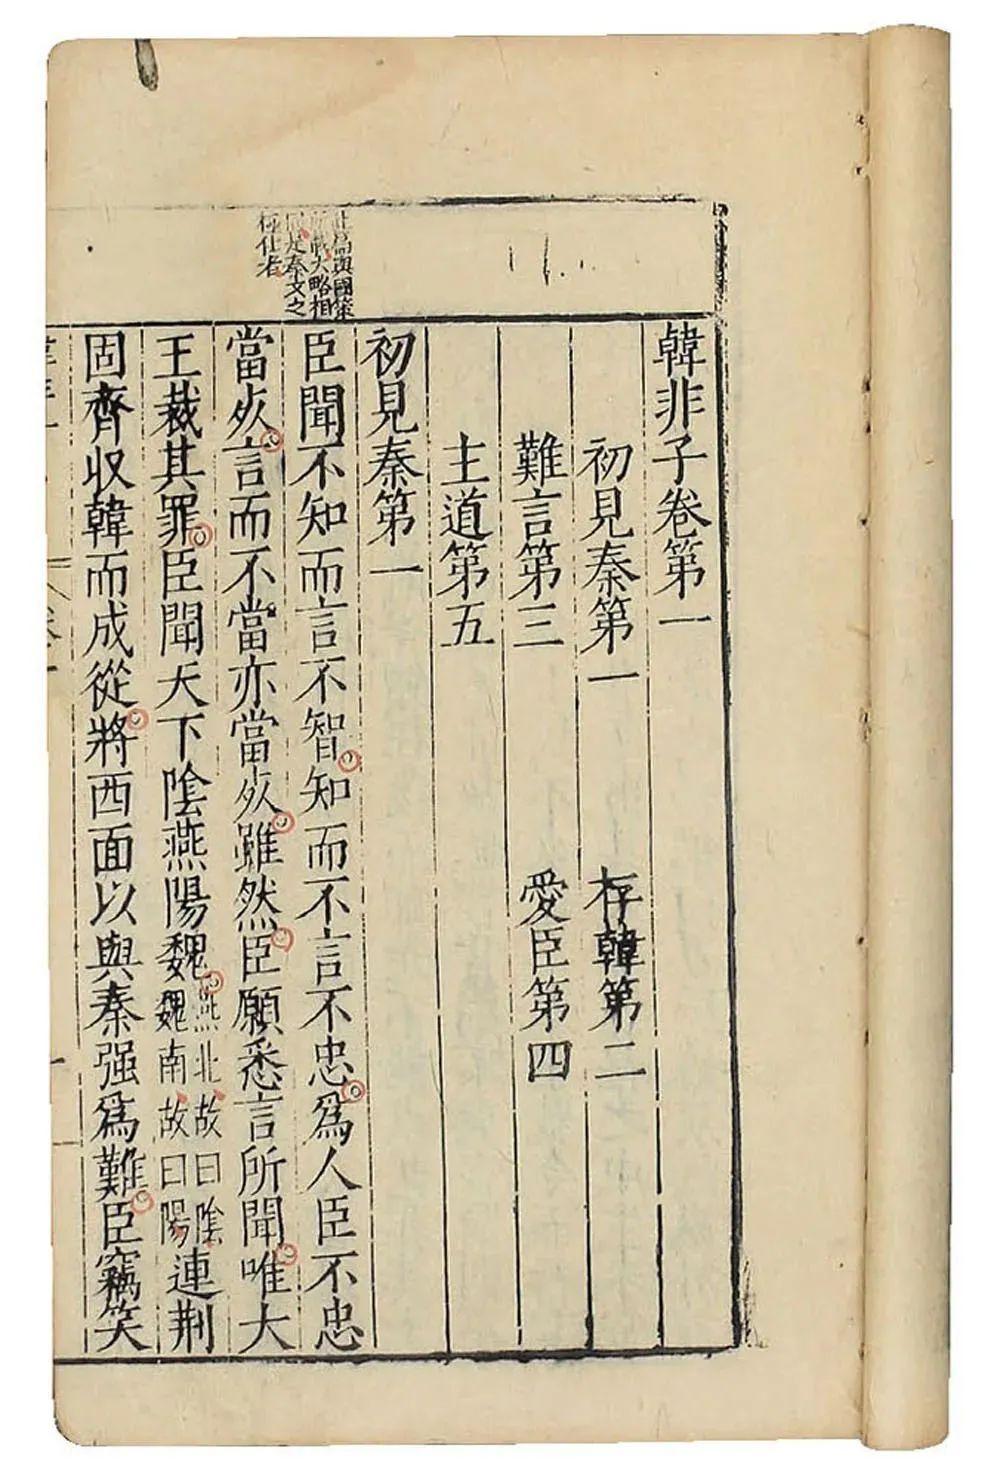 韓非子卷第一
初見秦第一　存韓第二
難言第三　愛臣第四
主道第五
初見秦第一
臣聞不知而言不智知而不言不忠爲人臣不忠
當死言而不當亦當死雖然臣願悉言所聞唯大
王裁其罪臣聞天下陰燕陽魏燕北故曰陰魏南故曰陽連荆
固齊収韓而成從將西面以與秦强爲難臣竊笑
與國策
大略相
秦文之
者